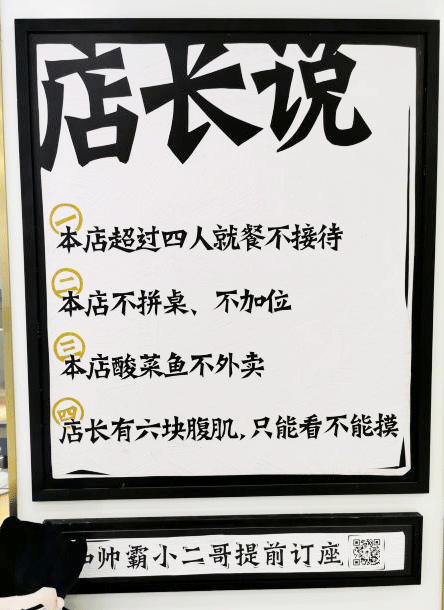 店长说
一
本店超过四人就餐不接待
二
本店不拼桌、不加位
三
本店酸菜鱼不外卖
四
店长有六块腹肌,只能看不能摸
帅霸小二哥提前订座